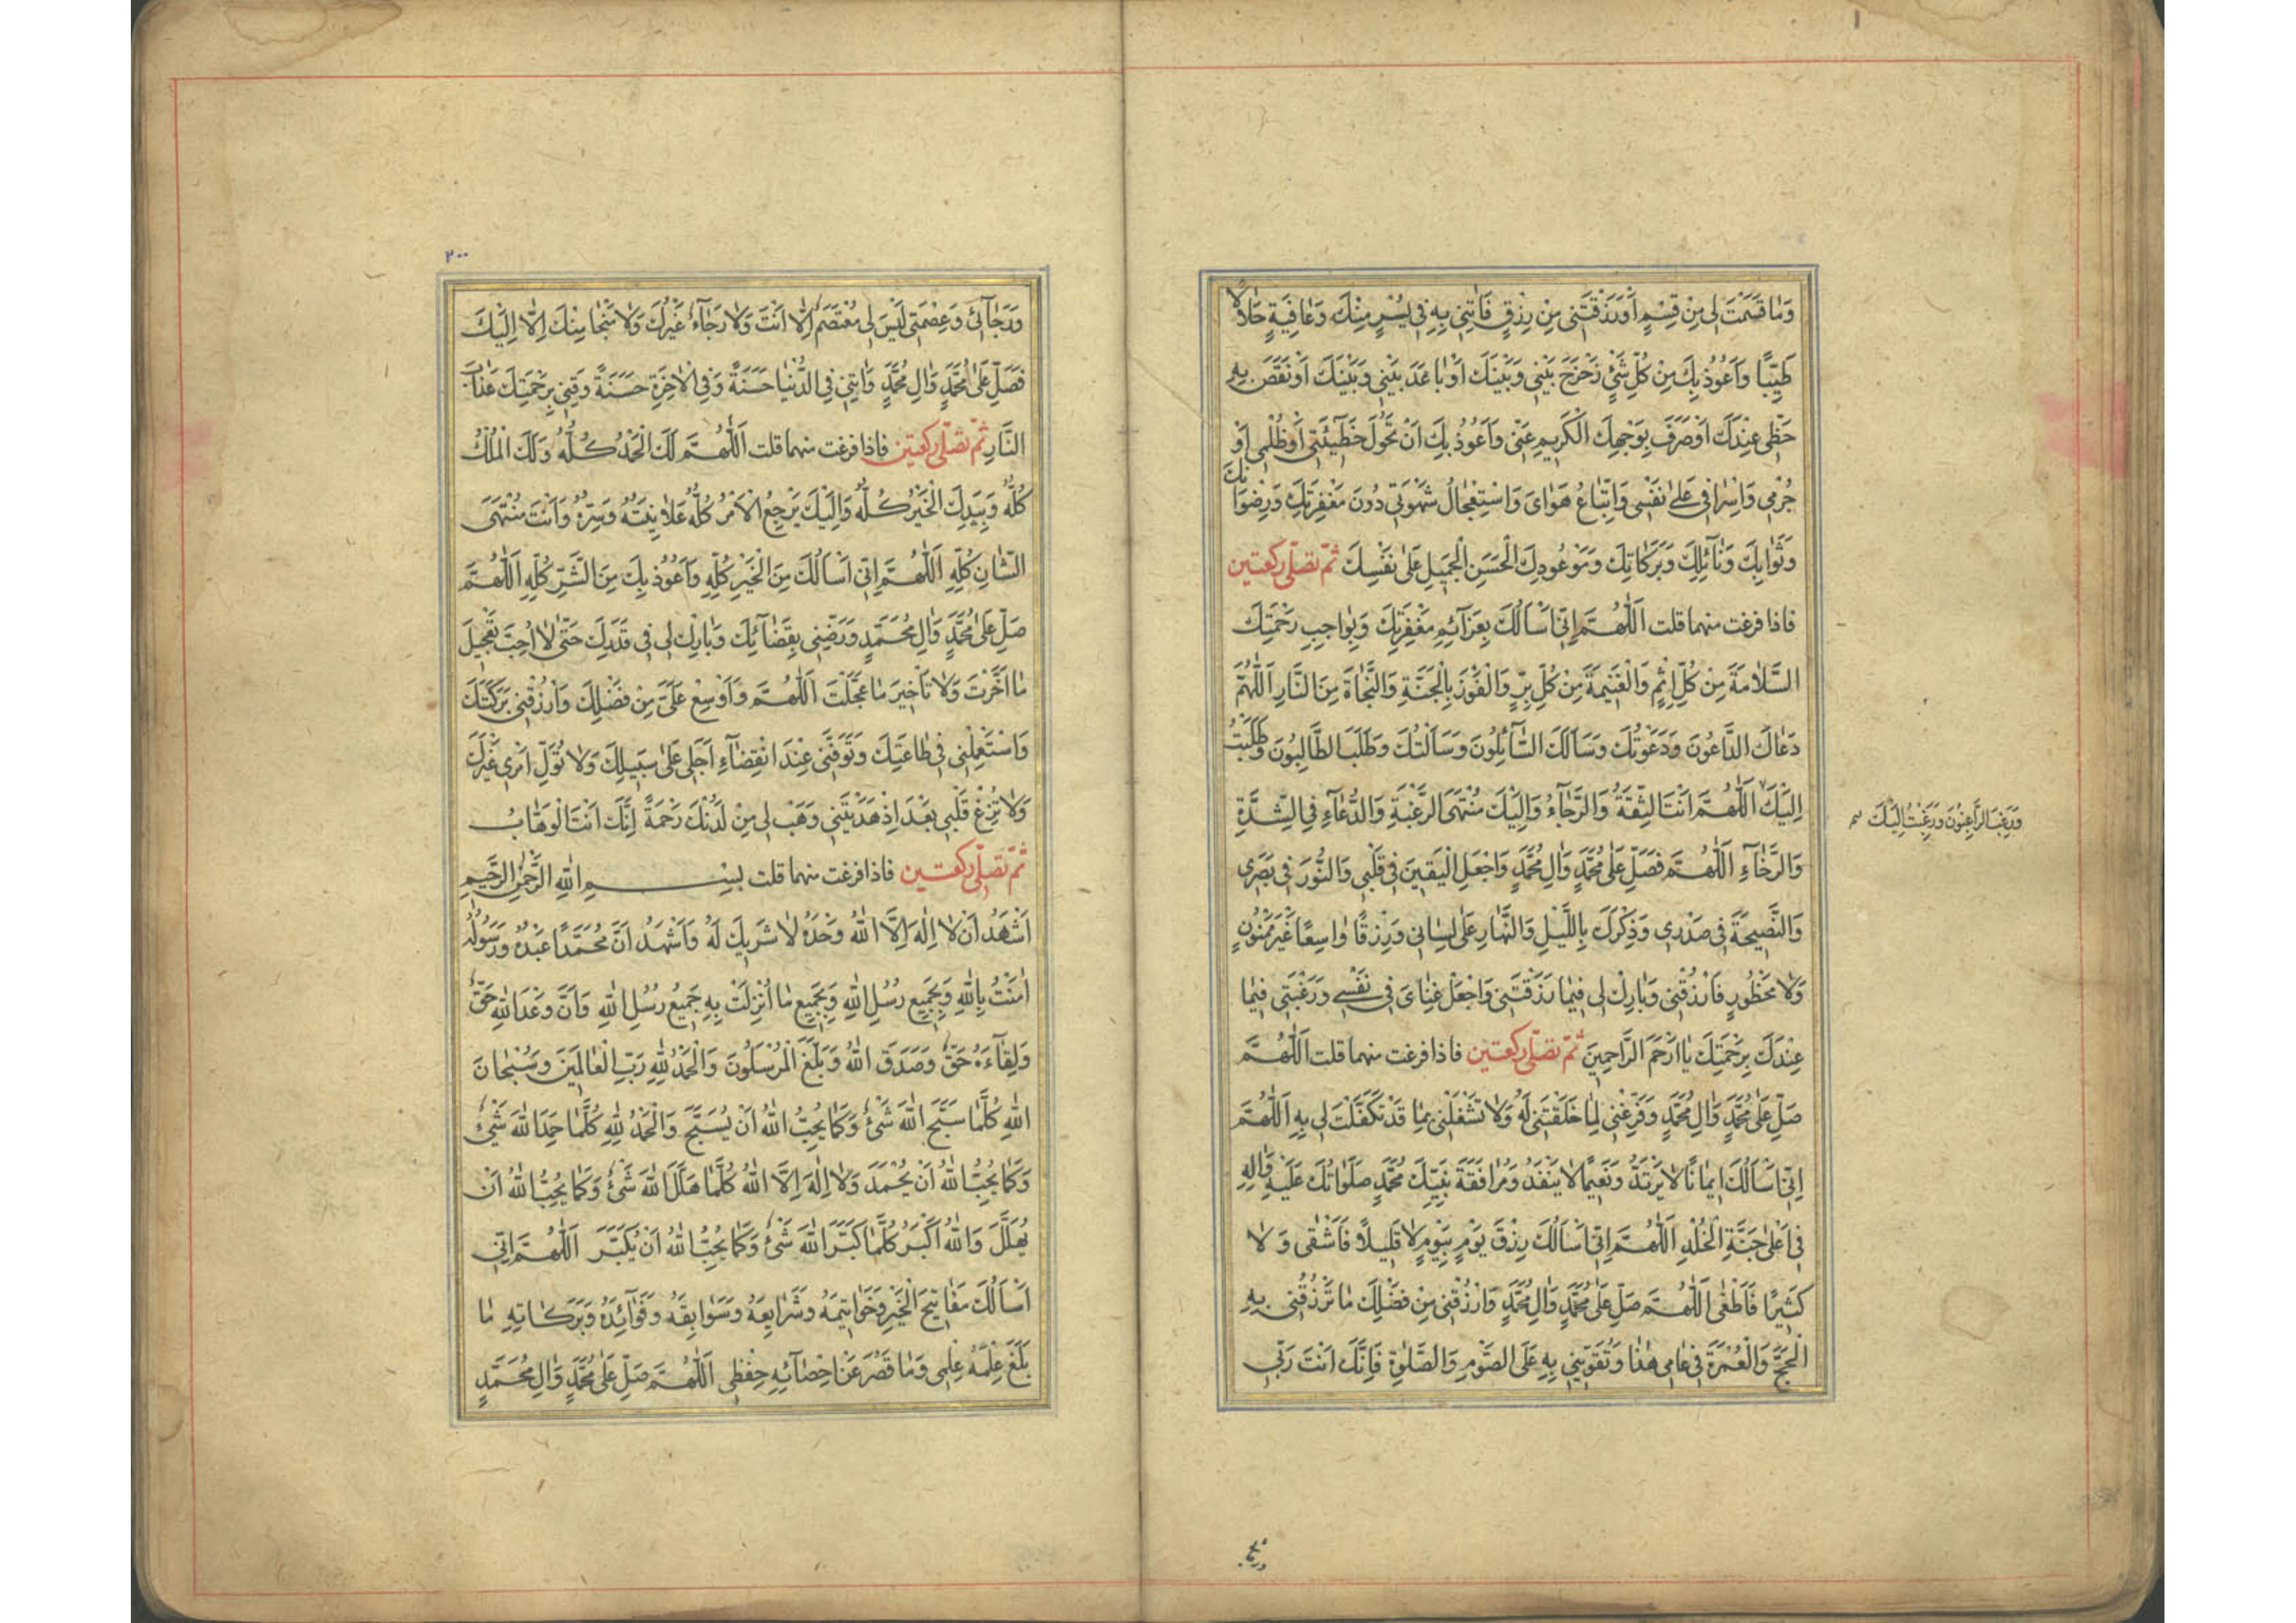 وَمٰا قَسَمْتَ لِي مِنْ قِسْمٍ اَوْ رَزَقْتَنِي مِنْ رِزْقٍ فَاٰتِنِي بِهِ فِي يُسْرٍ مِنْكَ وَعٰافِيَةٍ حَلاٰلاً
طَيِّبًا وَاَعُوذُ بِكَ مِنْ كُلِّ شَيْءٍ زَحْزَحَ بَيْنِي وَبَيْنَكَ اَوْ بٰاعَدَ بَيْنِي وَبَيْنَكَ اَوْ نَقَصَ بِهِ
حَظِّي عِنْدَكَ اَوْ صَرَفَ بِوَجْهِكَ الْكَرِيمِ عَنِّي وَاَعُوذُ بِكَ اَنْ تَحُولَ خَطِٓيئَتِي اَوْ ظُلْمِي اَوْ
جُرْمِي وَاِسْرٰافِي عَلىٰ نَفْسِي وَاتِّبٰاعُ هَوٰايَ وَاسْتِعْجٰالُ شَهْوَتِي دُونَ مَغْفِرَتِكَ وَرِضْوٰانِكَ
وَثَوٰابِكَ وَنٰآئِلِكَ وَبَرَكٰاتِكَ وَمَوْعُودِكَ الْحَسَنِ الْجَمِيلِ عَلىٰ نَفْسِكَ ثمّ تصلّى ركعتين
فاذا فرغت منهما قلت اَللّٰهُمَّ اِنِّي اَسْاَلُكَ بِعَزٰآئِمِ مَغْفِرَتِكَ وَبِوٰاجِبِ رَحْمَتِكَ
السَّلاٰمَةَ مِنْ كُلِّ اِثْمٍ وَالْغَنِيمَةَ مِنْ كُلِّ بِرٍّ وَالْفَوْزَ بِالْجَنَّةِ وَالنَّجٰاةَ مِنَ النَّارِ اَللّٰهُمَّ
دَعٰاكَ الدَّاعُونَ وَدَعَوْتُكَ وَسَاَلَكَ السَّآئِلُونَ وَسَاَلْتُكَ وَطَلَبَ الطَّالِبُونَ وَطَلَبْتُ
اِلَيْكَ اَللّٰهُمَّ اَنْتَ الثِّقَةُ وَالرَّجٰآءُ وَاِلَيْكَ مُنْتَهَى الرَّغْبَةِ وَالدُّعٰآءِ فِي الشِّدَّةِ
وَرَغِبَ الرَّاغِبُونَ وَرَغِبْتُ اِلَيْكَ
وَالرَّخٰآءِ اَللّٰهُمَّ فَصَلِّ عَلىٰ مُحَمَّدٍ وَاٰلِ مُحَمَّدٍ وَاجْعَلِ الْيَقِينَ فِي قَلْبِي وَالنُّورَ فِي بَصَرِي
وَالنَّصِيحَةَ فِي صَدْرِي وَذِكْرَكَ بِاللَّيْلِ وَالنَّهٰارِ عَلىٰ لِسٰانِي وَرِزْقًا وٰاسِعًا غَيْرَ مَمْنُونٍ
وَلاٰ مَحْظُورٍ فَارْزُقْنِي وَبٰارِكْ لِي فِيمٰا رَزَقْتَنِي وَاجْعَلْ غِنٰايَ فِي نَفْسِي وَرَغْبَتِي فِيمٰا
عِنْدَكَ بِرَحْمَتِكَ يٰا اَرْحَمَ الرَّاحِمِينَ ثمّ تصلّى ركعتين فاذا فرغت منهما قلت اَللّٰهُمَّ
صَلِّ عَلىٰ مُحَمَّدٍ وَاٰلِ مُحَمَّدٍ وَفَرِّغْنِي لِمٰا خَلَقْتَنِي لَهُ وَلاٰ تَشْغَلْنِي بِمٰا قَدْ تَكَفَّلْتَ لِي بِهِ اَللّٰهُمَّ
اِنِّي اَسْاَلُكَ اِيمٰانًا لاٰ يَرْتَدُّ وَنَعِيمًا لاٰ يَنْفَدُ وَمُرٰافَقَةَ نَبِيِّكَ مُحَمَّدٍ صَلَوٰاتُكَ عَلَيْهِ وَاٰلِهِ
فِي اَعْلىٰ جَنَّةِ الْخُلْدِ اَللّٰهُمَّ اِنِّي اَسْاَلُكَ رِزْقَ يَوْمٍ بِيَوْمٍ لاٰ قَلِيلاً فَاَشْقىٰ وَلاٰ
كَثِيرًا فَاَطْغىٰ اَللّٰهُمَّ صَلِّ عَلىٰ مُحَمَّدٍ وَاٰلِ مُحَمَّدٍ وَارْزُقْنِي مِنْ فَضْلِكَ مٰا تَرْزُقُنِي بِهِ
الْحَجَّ وَالْعُمْرَةَ فِي عٰامِي هٰذٰا وَتُقَوِّينِي بِهِ عَلَى الصَّوْمِ وَالصَّلٰوةِ فَاِنَّكَ اَنْتَ رَبِّي
٢٠٠
وَرَجٰآئِي وَعِصْمَتِي لَيْسَ لِي مُعْتَصَمٌ اِلاّٰ اَنْتَ وَلاٰ رَجٰآءٌ غَيْرُكَ وَلاٰ مَنْجٰا مِنْكَ اِلاّٰ اِلَيْكَ
فَصَلِّ عَلىٰ مُحَمَّدٍ وَاٰلِ مُحَمَّدٍ وَاٰتِنِي فِي الدُّنْيٰا حَسَنَةً وَفِي الْاٰخِرَةِ حَسَنَةً وَقِنِي بِرَحْمَتِكَ عَذٰابَ
النَّارِ ثمّ تصلّى ركعتين فاذا فرغت منهما قلت اَللّٰهُمَّ لَكَ الْحَمْدُ كُلُّهُ وَلَكَ الْمُلْكُ
كُلُّهُ وَبِيَدِكَ الْخَيْرُ كُلُّهُ وَاِلَيْكَ يَرْجِعُ الْاَمْرُ كُلُّهُ عَلاٰنِيَتُهُ وَسِرُّهُ وَاَنْتَ مُنْتَهَى
الشَّانِ كُلِّهِ اَللّٰهُمَّ اِنِّي اَسْاَلُكَ مِنَ الْخَيْرِ كُلِّهِ وَاَعُوذُ بِكَ مِنَ الشَّرِّ كُلِّهِ اَللّٰهُمَّ
صَلِّ عَلىٰ مُحَمَّدٍ وَاٰلِ مُحَمَّدٍ وَرَضِّنِي بِقَضٰآئِكَ وَبٰارِكْ لِي فِي قَدَرِكَ حَتّىٰ لاٰ اُحِبَّ تَعْجِيلَ
مٰا اَخَّرْتَ وَلاٰ تَاْخِيرَ مٰا عَجَّلْتَ اَللّٰهُمَّ وَاَوْسِعْ عَلَيَّ مِنْ فَضْلِكَ وَارْزُقْنِي بَرَكَتَكَ
وَاسْتَعْمِلْنِي فِي طٰاعَتِكَ وَتَوَفَّنِي عِنْدَ انْقِضٰآءِ اَجَلِي عَلىٰ سَبِيلِكَ وَلاٰ تُوَلِّ اَمْرِي غَيْرَكَ
وَلاٰ تُزِغْ قَلْبِي بَعْدَ اِذْ هَدَيْتَنِي وَهَبْ لِي مِنْ لَدُنْكَ رَحْمَةً اِنَّكَ اَنْتَ الْوَهّٰابُ
ثمّ تصلّى ركعتين فاذا فرغت منهما قلت بِسْمِ اللّٰهِ الرَّحْمٰنِ الرَّحِيمِ
اَشْهَدُ اَنْ لاٰ اِلٰهَ اِلَّا اللّٰهُ وَحْدَهُ لاٰ شَرِيكَ لَهُ وَاَشْهَدُ اَنَّ مُحَمَّدًا عَبْدُهُ وَرَسُولُهُ
اٰمَنْتُ بِاللّٰهِ وَبِجَمِيعِ رُسُلِ اللّٰهِ وَبِجَمِيعِ مٰا اُنْزِلَتْ بِهِ جَمِيعُ رُسُلِ اللّٰهِ وَاَنَّ وَعْدَ اللّٰهِ حَقٌّ
وَلِقٰآءَهُ حَقٌّ وَصَدَقَ اللّٰهُ وَبَلَّغَ الْمُرْسَلُونَ وَالْحَمْدُ لِلّٰهِ رَبِّ الْعٰالَمِينَ وَسُبْحٰانَ
اللّٰهِ كُلَّمٰا سَبَّحَ اللّٰهَ شَيْءٌ وَكَمٰا يُحِبُّ اللّٰهُ اَنْ يُسَبَّحَ وَالْحَمْدُ لِلّٰهِ كُلَّمٰا حَمِدَ اللّٰهَ شَيْءٌ
وَكَمٰا يُحِبُّ اللّٰهُ اَنْ يُحْمَدَ وَلاٰ اِلٰهَ اِلَّا اللّٰهُ كُلَّمٰا هَلَّلَ اللّٰهَ شَيْءٌ وَكَمٰا يُحِبُّ اللّٰهُ اَنْ
يُهَلَّلَ وَاللّٰهُ اَكْبَرُ كُلَّمٰا كَبَّرَ اللّٰهَ شَيْءٌ وَكَمٰا يُحِبُّ اللّٰهُ اَنْ يُكَبَّرَ اَللّٰهُمَّ اِنِّي
اَسْاَلُكَ مَفٰاتِيحَ الْخَيْرِ وَخَوٰاتِيمَهُ وَشَرٰايِعَهُ وَسَوٰابِقَهُ وَفَوٰآئِدَهُ وَبَرَكٰاتِهِ مٰا
بَلَغَ عِلْمَهُ عِلْمِي وَمٰا قَصُرَ عَنْ اِحْصٰآئِهِ حِفْظِي اَللّٰهُمَّ صَلِّ عَلىٰ مُحَمَّدٍ وَاٰلِ مُحَمَّدٍ